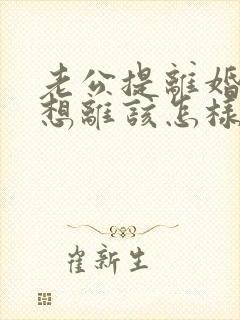 老公提離婚
想離該怎樣
崔新生